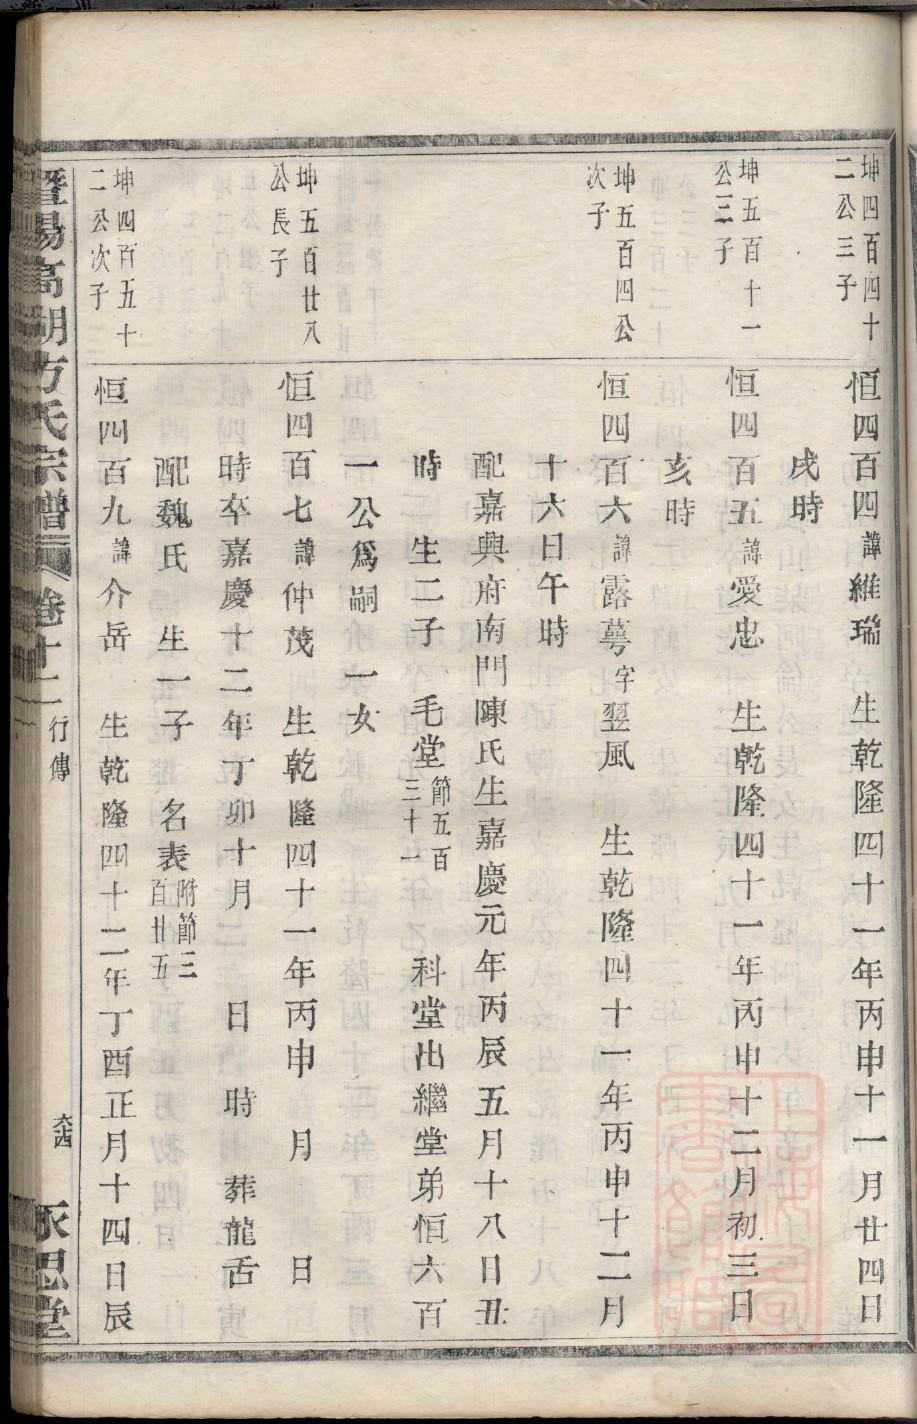 坤四百四十
二公三子
恒四百四諱維瑞　生乾隆四十一年丙申十一月廿四日
戌時
坤五百十一
公三子
恒四百五諱愛忠　生乾隆四十一年丙申十二月初三日
亥時
坤五百四公
次子
恒四百六諱露萼字翌風　生乾隆四十一年丙申十二月
十六日午時
配嘉興府南門陳氏生嘉慶元年丙辰五月十八日丑
時　生二子　毛堂節五百三十一　科堂出繼堂弟恒六百
一公爲嗣　一女
坤五百廿八
公長子
恒四百七諱仲茂　生乾隆四十一年丙申　月　日
時卒嘉慶十二年丁卯十月　日　時　葬龍舌
配魏氏　生一子　名表附節三百廿五
坤四百五十
二公次子
恒四百九諱介岳　生乾隆四十二年丁酉正月十四日辰
暨陽高湖方氏宗譜　卷十二　行傳　永思堂